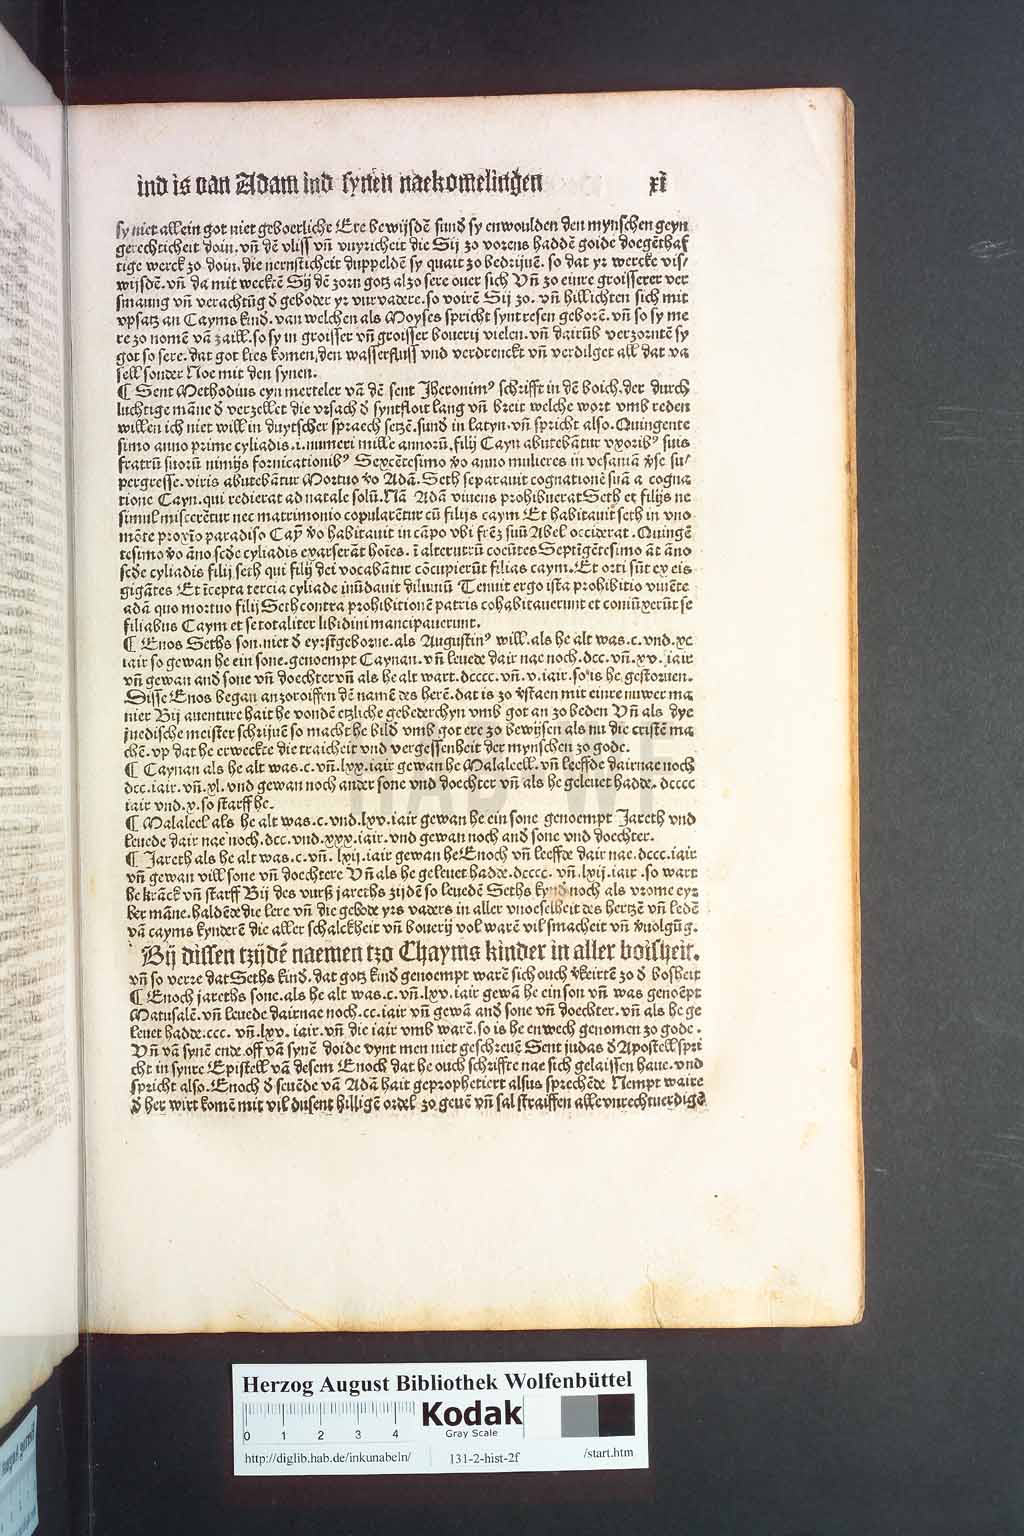 ind is van Adam ind synen naekomelingen xi
sy niet allein got niet geboerliche Ere bewijsdē sund sy enwoulden den mynschen geyn
gerechticheit doin. vñ dē vliss vñ vnyricheit die Sij zo vorens haddē goide doegēthaf
tige werck zo doin. die nernsticheit duppeldē sy quait zo bedrijuē. so dat yr wercke vis/
wijsdē. vñ da mit weckrē Sij dē zorn gotz alzo sere ouer sich Vñ zo einre groisserer ver
smaung vñ verachtūg d geboder yr vurvadere. so voirē Sij zo. vñ hillichten sich mit
vpsatz an Cayms kind. van welchen als Moyses spricht synt resen geborē. vñ so sy me
re zo nomē vā zaill. so sy in groisser vñ groisser bouerij vielen. vñ dairūb verzorntē sy
got so sere. dat got lies komen, den wasserfluss vnd verdrenckt vñ verdilget all dat va
sell sonder Noe mit den synen.
¶ Sent Methodius eyn merteler vā dē sent Jheronimꝰ schrifft in dē boich. der durch
luchtige māne d verzellet die vrsach d syntfloit lang vñ breit welche wort vmb reden
willen ich niet will in duytscher spraech setzē. sund in latyn. vñ spricht also. Quingente
simo anno prime cyliadis .i. numeri mille annorū. filij Cayn abutebātur vxoribꝰ suis
fratrū suorū nimijs fornicationibꝰ Sexcētesimo vo anno mulieres in vesaniā vse su/
pergresse. viris abutebātur Mortuo vo Adā. Seth separauit cognationē suā a cogna
tione Cayn. qui redierat ad natale solū. Nā Adā viuens prohibuerat Seth et filijs ne
simul miscerētur nec matrimonio copularētur cū filijs caym Et habitauit seth in vno
mōte proxīo paradiso Cayn vo habitauit in cāpo vbi frēz suū Abel occiderat. Quingē
tesimo vo āno scde cyliadis exarserāt hoīes. ī alterutrū coeūtes Septīgētesimo āt āno
scde cyliadis filij seth qui filij dei vocabātur cōcupierūt filias caym. Et orti sūt ex eis
gigātes Et īcepta tercia cyliade inūdauit diluuiū Tenuit ergo ista prohibitio viuēte
adā quo mortuo filij Seth contra prohibitionē patris cohabitauerunt et coniūxerūt se
filiabus Caym et se totaliter libidini mancipauerunt.
¶ Enos Seths son. niet d eyrstgeborne. als Augustinꝰ will. als he alt was. c. vnd. xc
iair so gewan he ein sone. genoempt Caynan. vñ leuede dair nae noch. dcc. vñ. xv. iair
vñ gewan and sone vñ doechter vñ als he alt wart. dcccc. vñ. v. iair. so is he gestoruen.
Disse Enos began anzoroiffen dē namē des herē. dat is zo vstaen mit einre nuwer ma
nier Bij auenture hait he vondē etzliche gebederchyn vmb got an zo beden Vñ als dye
juedische meister schrijuē so macht he bild vmb got ere zo bewijsen als nu die cristē ma
chē. vp dat he erweckte die traicheit vnd vergessenheit der mynschen zo gode.
¶ Caynan als he alt was. c. vñ. lxx. iair gewan he Malaleell. vñ leeffde dairnae noch
dcc. iair. vñ. xl. vnd gewan noch ander sone vnd doechter vñ als he geleuet hadde. dcccc
iair vnd. x. so starff he.
¶ Malaleel als he alt was. c. vnd. lxv. iair gewan he ein sone genoempt Jareth vnd
leuede dair nae noch. dcc. vnd. xxx. iair. vnd gewan noch and sone vnd doechter.
¶ Jareth als he alt was. c. vñ. lxij. iair gewan he Enoch vñ leeffde dair nae. dccc. iair
vñ gewan vill sone vñ doechtere Vñ als he geleuet hadde. dcccc. vñ. lxij. iair. so wart
he krāck vñ starff Bij des vurß jareths zijdē so leuedē Seths kynd noch als vrome eyr
ber māne. haldēde die lere vñ die gebode yrs vaders in aller vnoeselheit des hertzē vñ ledē
vā cayms kynderē die aller schalckheit vñ bouerij vol warē vil smacheit vñ vuolgūg.
Bij dissen tzijdē naemen tzo Chayms kinder in aller boisheit.
vñ so verre dat Seths kind. dat gotz kind genoempt warē sich ouch vkeirtē zo d bosheit
¶ Enoch jareths sone. als he alt was. c. vñ. lxv. iair gewā he ein son vñ was genoēpt
Matusalē. vñ leuede dairnae noch. cc. iair vñ gewā and sone vñ doechter. vñ als he ge
leuet hadde. ccc. vñ. lxv. iair. vñ die iair vmb warē. so is he enwech genomen zo gode.
Vñ vā synē ende. off vā synē doide vynt men niet geschreuē Sent judas d Apostell spri
cht in synre Epistell vā desem Enoch dat he ouch schriffte nae sich gelaissen haue. vnd
spricht also. Enoch d seuēde vā Adā hait geprophetiert alsus sprechēde Nempt waire
d her wirt komē mit vil dusent hilligē ordel zo geuē vñ sal straiffen alle vnrechtuerdigē
HAB WF
Herzog August Bibliothek Wolfenbüttel
0 1 2 3 4
Kodak
Gray Scale
http://diglib.hab.de/inkunabeln/ 131-2-hist-2f /start.htm